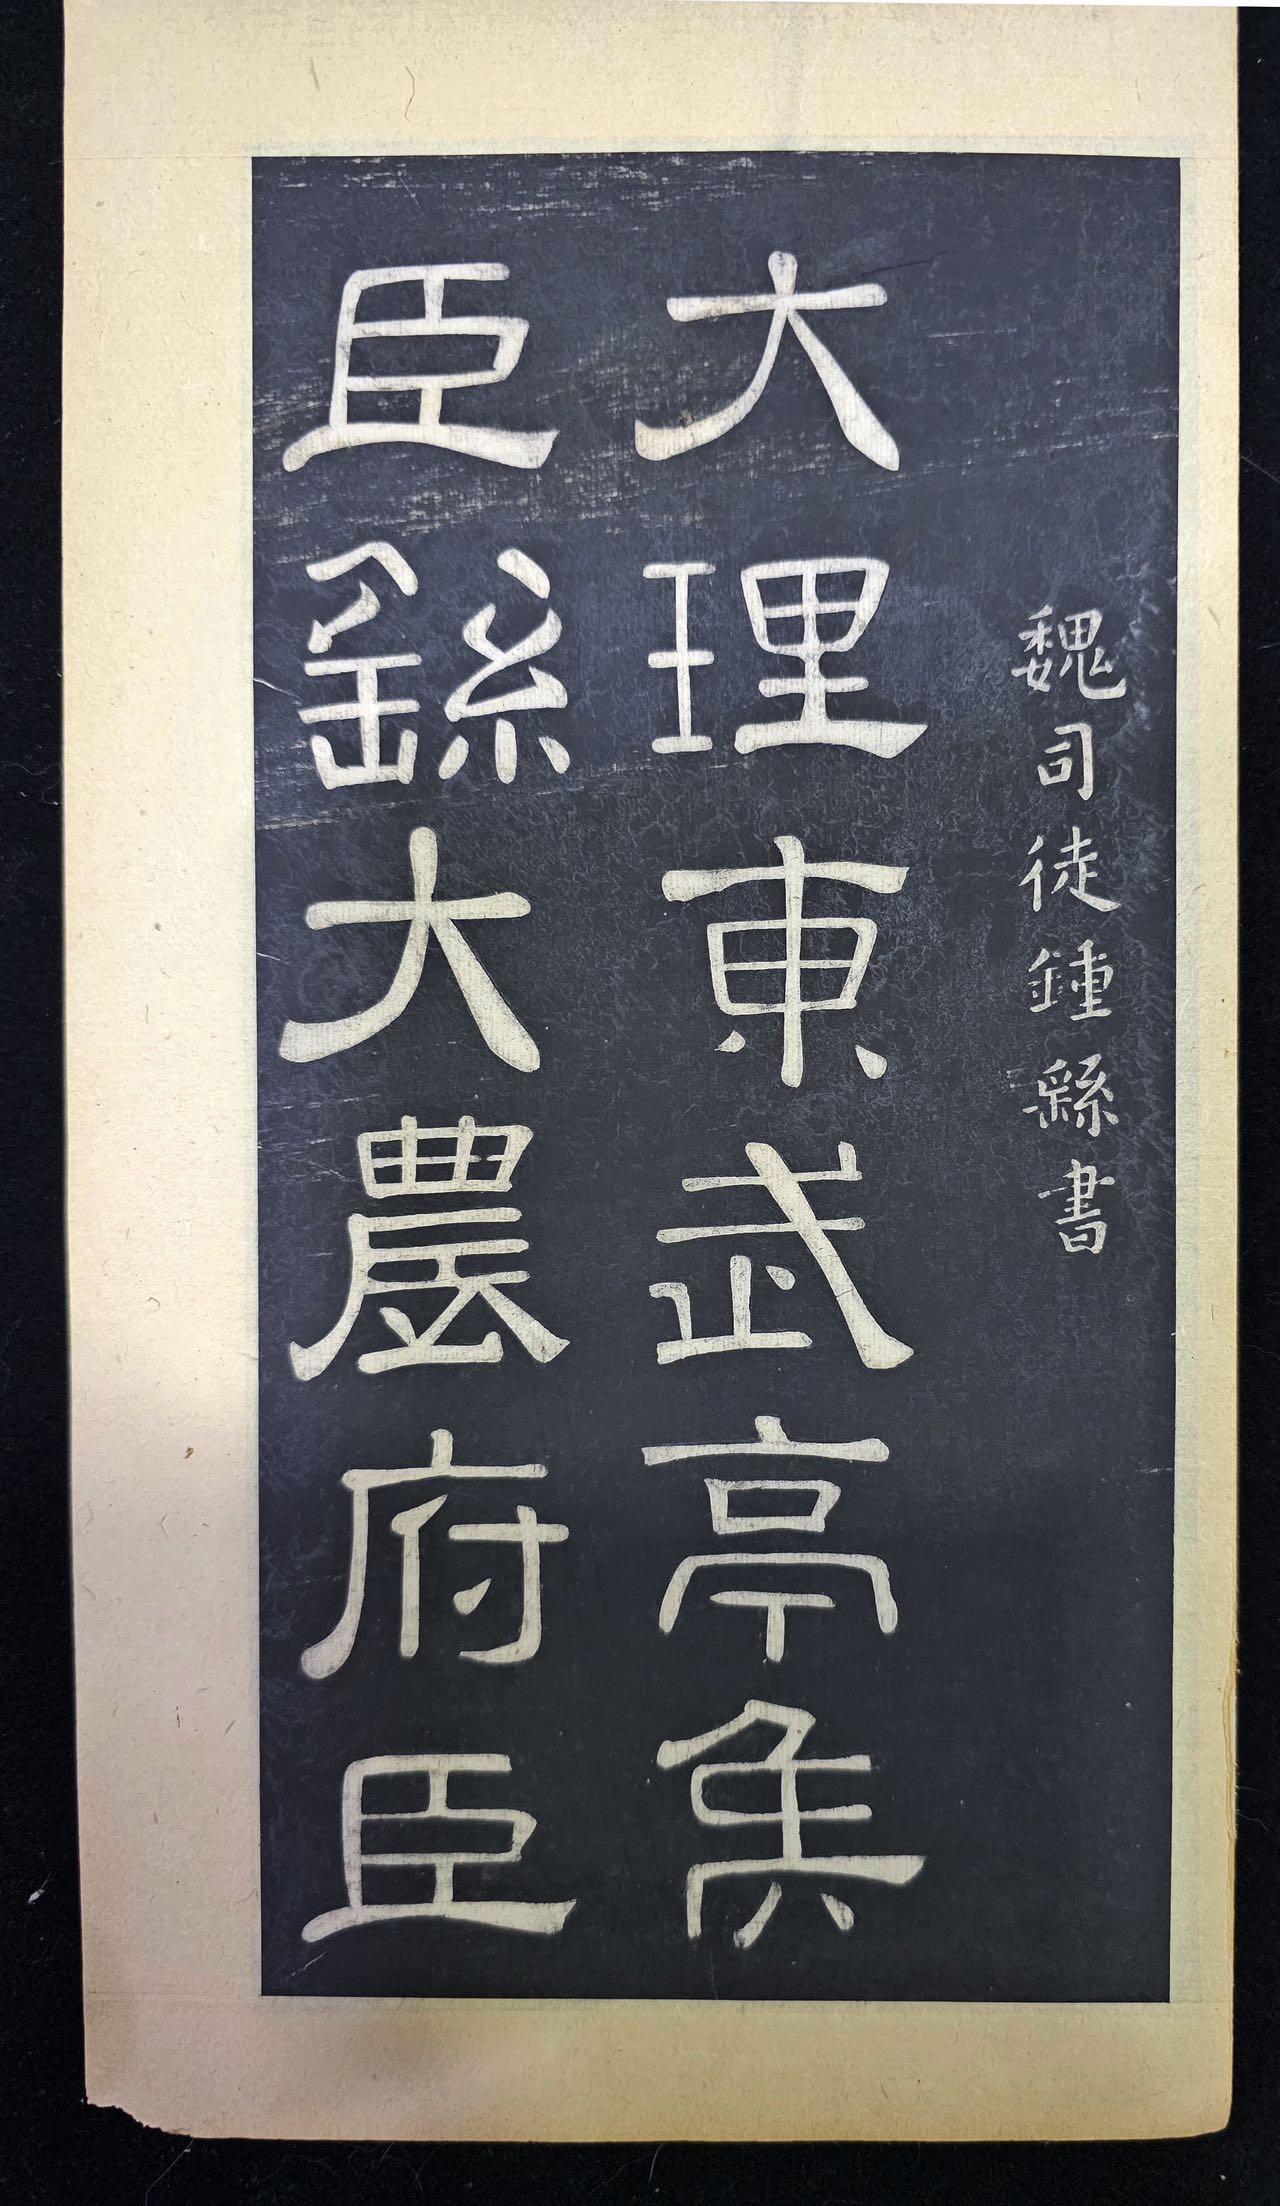 魏司徒鍾繇書
大理東武亭矦
臣繇大農府臣